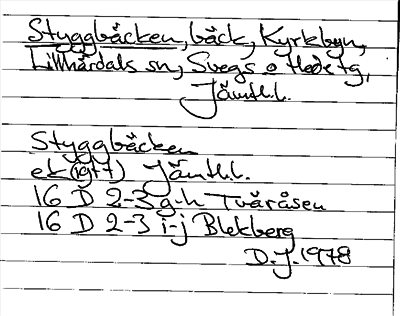 Styggbäcken, bäck, Kyrkbyn,
Lillhärdals sn, Svegs o Hede tg,
Jämtl.l.
Styggbäcken
ek(gtt) Jämtl.l.
16 D 2-3 g-h Tväråsen
16 D 2-3 i-j Blekberg
D.J. 1978